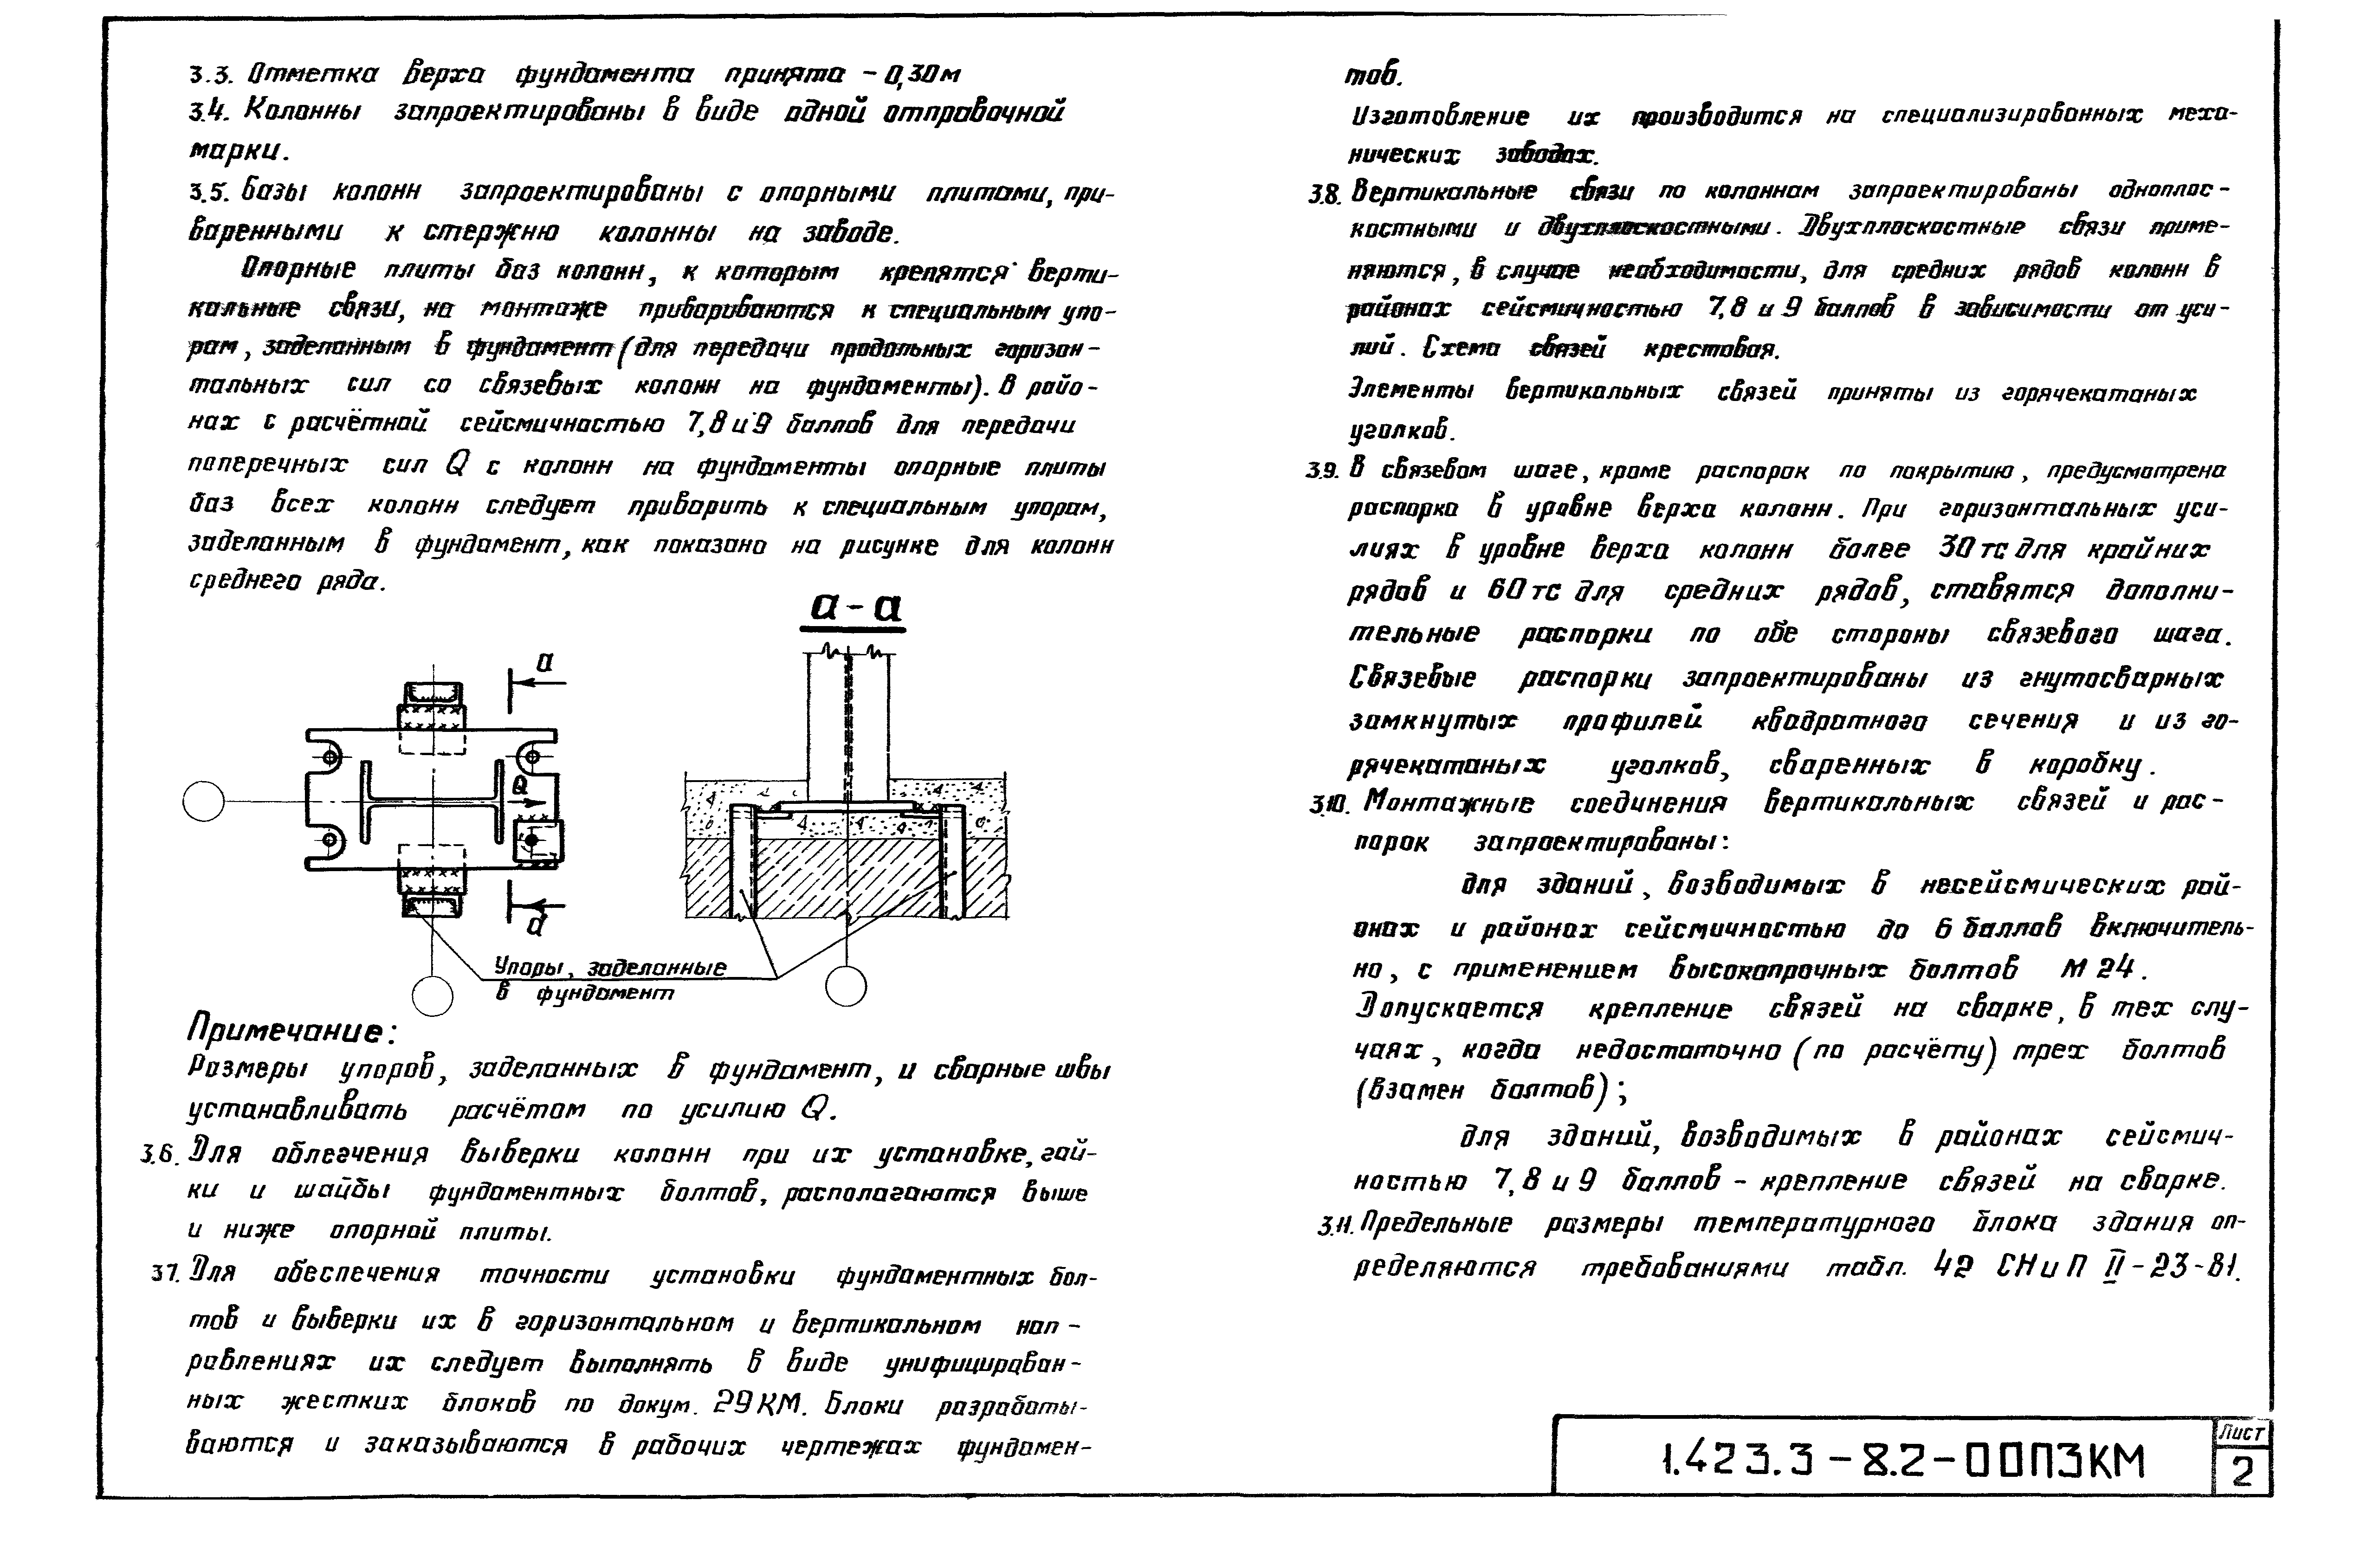 3.3. Отметка верха фундамента принята - 0,30м
3.4. Колонны запроектированы в виде одной отправочной
марки.
3.5. Базы колонн запроектированы с опорными плитами, при-
варенными к стержню колонны на заводе.
Опорные плиты баз колонн, к которым крепятся верти-
кальные связи, на монтаже привариваются к специальным упо-
рам, заделанным в фундамент (для передачи продольных горизон-
тальных сил со связевых колонн на фундаменты). В райо-
нах с расчётной сейсмичностью 7,8 и 9 баллов для передачи
поперечных сил Q с колонн на фундаменты опорные плиты
баз всех колонн следует приварить к специальным упорам,
заделанным в фундамент, как показано на рисунке для колонн
среднего ряда.
а-а
а
Q
а
Упоры, заделанные
в фундамент
Примечание:
Размеры упоров, заделанных в фундамент, и сварные швы
устанавливать расчётом по усилию Q.
3.6. Для облегчения выверки колонн при их установке, гай-
ки и шайбы фундаментных болтов, располагаются выше
и ниже опорной плиты.
3.7. Для обеспечения точности установки фундаментных бол-
тов и выверки их в горизонтальном и вертикальном нап-
равлениях их следует выполнять в виде унифицирован-
ных жестких блоков по докум. 29КМ. Блоки разрабаты-
ваются и заказываются в рабочих чертежах фундамен-
тов.
Изготовление их производится на специализированных меха-
нических заводах.
3.8. Вертикальные связи по колоннам запроектированы одноплос-
костными и двухплоскостными. Двухплоскостные связи приме-
няются, в случае необходимости, для средних рядов колонн в
районах сейсмичностью 7,8 и 9 баллов в зависимости от уси-
лий. Схема связей крестовая.
Элементы вертикальных связей приняты из горячекатаных
уголков.
3.9. В связевом шаге, кроме распорок по покрытию, предусмотрена
распорка в уровне верха колонн. При горизонтальных уси-
лиях в уровне верха колонн более 30 тс для крайних
рядов и 60 тс для средних рядов, ставятся дополни-
тельные распорки по обе стороны связевого шага.
Связевые распорки запроектированы из гнутосварных
замкнутых профилей квадратного сечения и из го-
рячекатаных уголков, сваренных в коробку.
3.10. Монтажные соединения вертикальных связей и рас-
порок запроектированы:
для зданий, возводимых в несейсмических рай-
онах и районах сейсмичностью до 6 баллов включитель-
но, с применением высокопрочных болтов М 24.
Допускается крепление связей на сварке, в тех слу-
чаях, когда недостаточно (по расчёту) трех болтов
(взамен болтов);
для зданий, возводимых в районах сейсмич-
ностью 7,8 и 9 баллов - крепление связей на сварке.
3.11. Предельные размеры температурного блока здания оп-
ределяются требованиями табл. 42 СНиП II-23-81.
1.423.3-8.2-00ПЗКМ
Лист
2